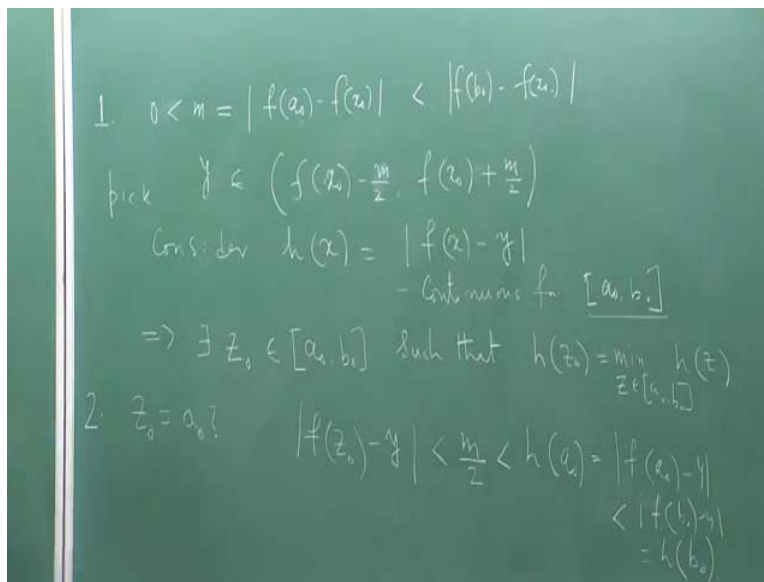 1. 0 < m = | f(a₀) - f(x₀) | < |f(b₀) - f(x₀)|
pick y ∈ (f(x₀) - m/2, f(x₀) + m/2)
Consider h(x) = | f(x) - y |
- Continuous fn [a₀, b₀]
=> ∃ z₀ ∈ [a₀, b₀] such that h(z₀) = min h(z)
z∈[a₀, b₀]
2. z₀ = a₀? |f(z₀) - y| < m/2 < h(a₀) = |f(a₀) - y|
< |f(b₀) - y|
= h(b₀)